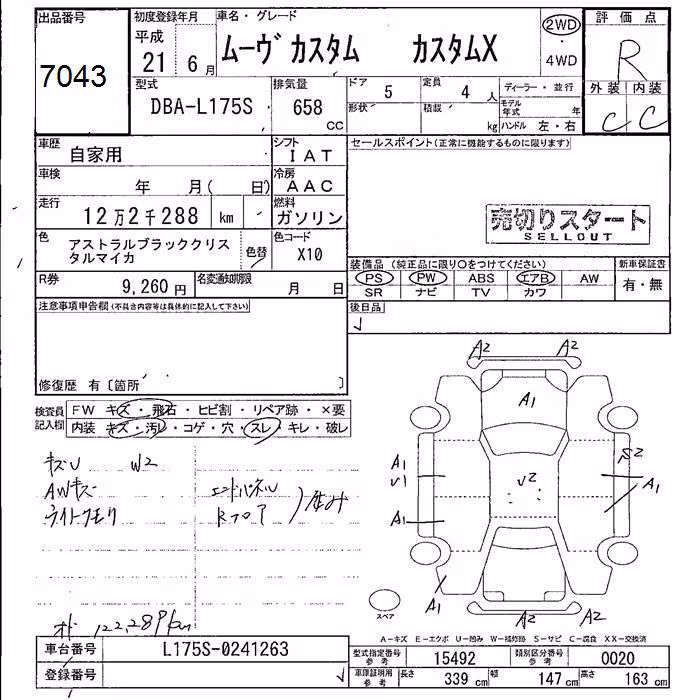 出品番号
7043
初度登録年月
平成
21 6月
車名・グレード
ムーヴ カスタム カスタムX
2WD
4WD
評価点
R
外装 内装
C C
型式
DBA-L175S
排気量
658
CC
ドア
5
定員
4 人
形状
積載
kg
ディーラー・並行
モデル年式 年
ハンドル 左・右
車歴
自家用
シフト
IAT
車検
年 月( 日)
冷房
AAC
走行
12万2千288 km
燃料
ガソリン
色
アストラルブラッククリスタルマイカ
色替
色コード
X10
R券
9,260円
名変通知期限
月 日
セールスポイント(正常に機能するものに限ります)
売切りスタート
SELLOUT
装備品(純正品に限り○をつけてください)
新車保証書
PS PW ABS エアB AW
SR ナビ TV カワ
有・無
後日品
注意事項申告欄(不具合内容等は具体的に記入して下さい)
修復歴 有〔箇所 〕
検査員
記入欄
FW キズ・飛石・ヒビ割・リペア跡・×要
内装 キズ・汚レ・コゲ・穴・スレ・キレ・破レ
キズU W2
AWキズ
ライトクモリ
エンドパネル
Rフロア
オド 122,289km
A2 A2
A1
A1
U1
U2
S2
A1
A1
A1
A2 A2
スペア
A−キズ E−エクボ U−凹み W−補修跡 S−サビ C−腐食 XX−交換済
車台番号
L175S-0241263
登録番号
型式指定番号
参考
15492
類別区分番号
参考
0020
車庫証明用
参考
長さ
339 cm
幅
147 cm
高さ
163 cm